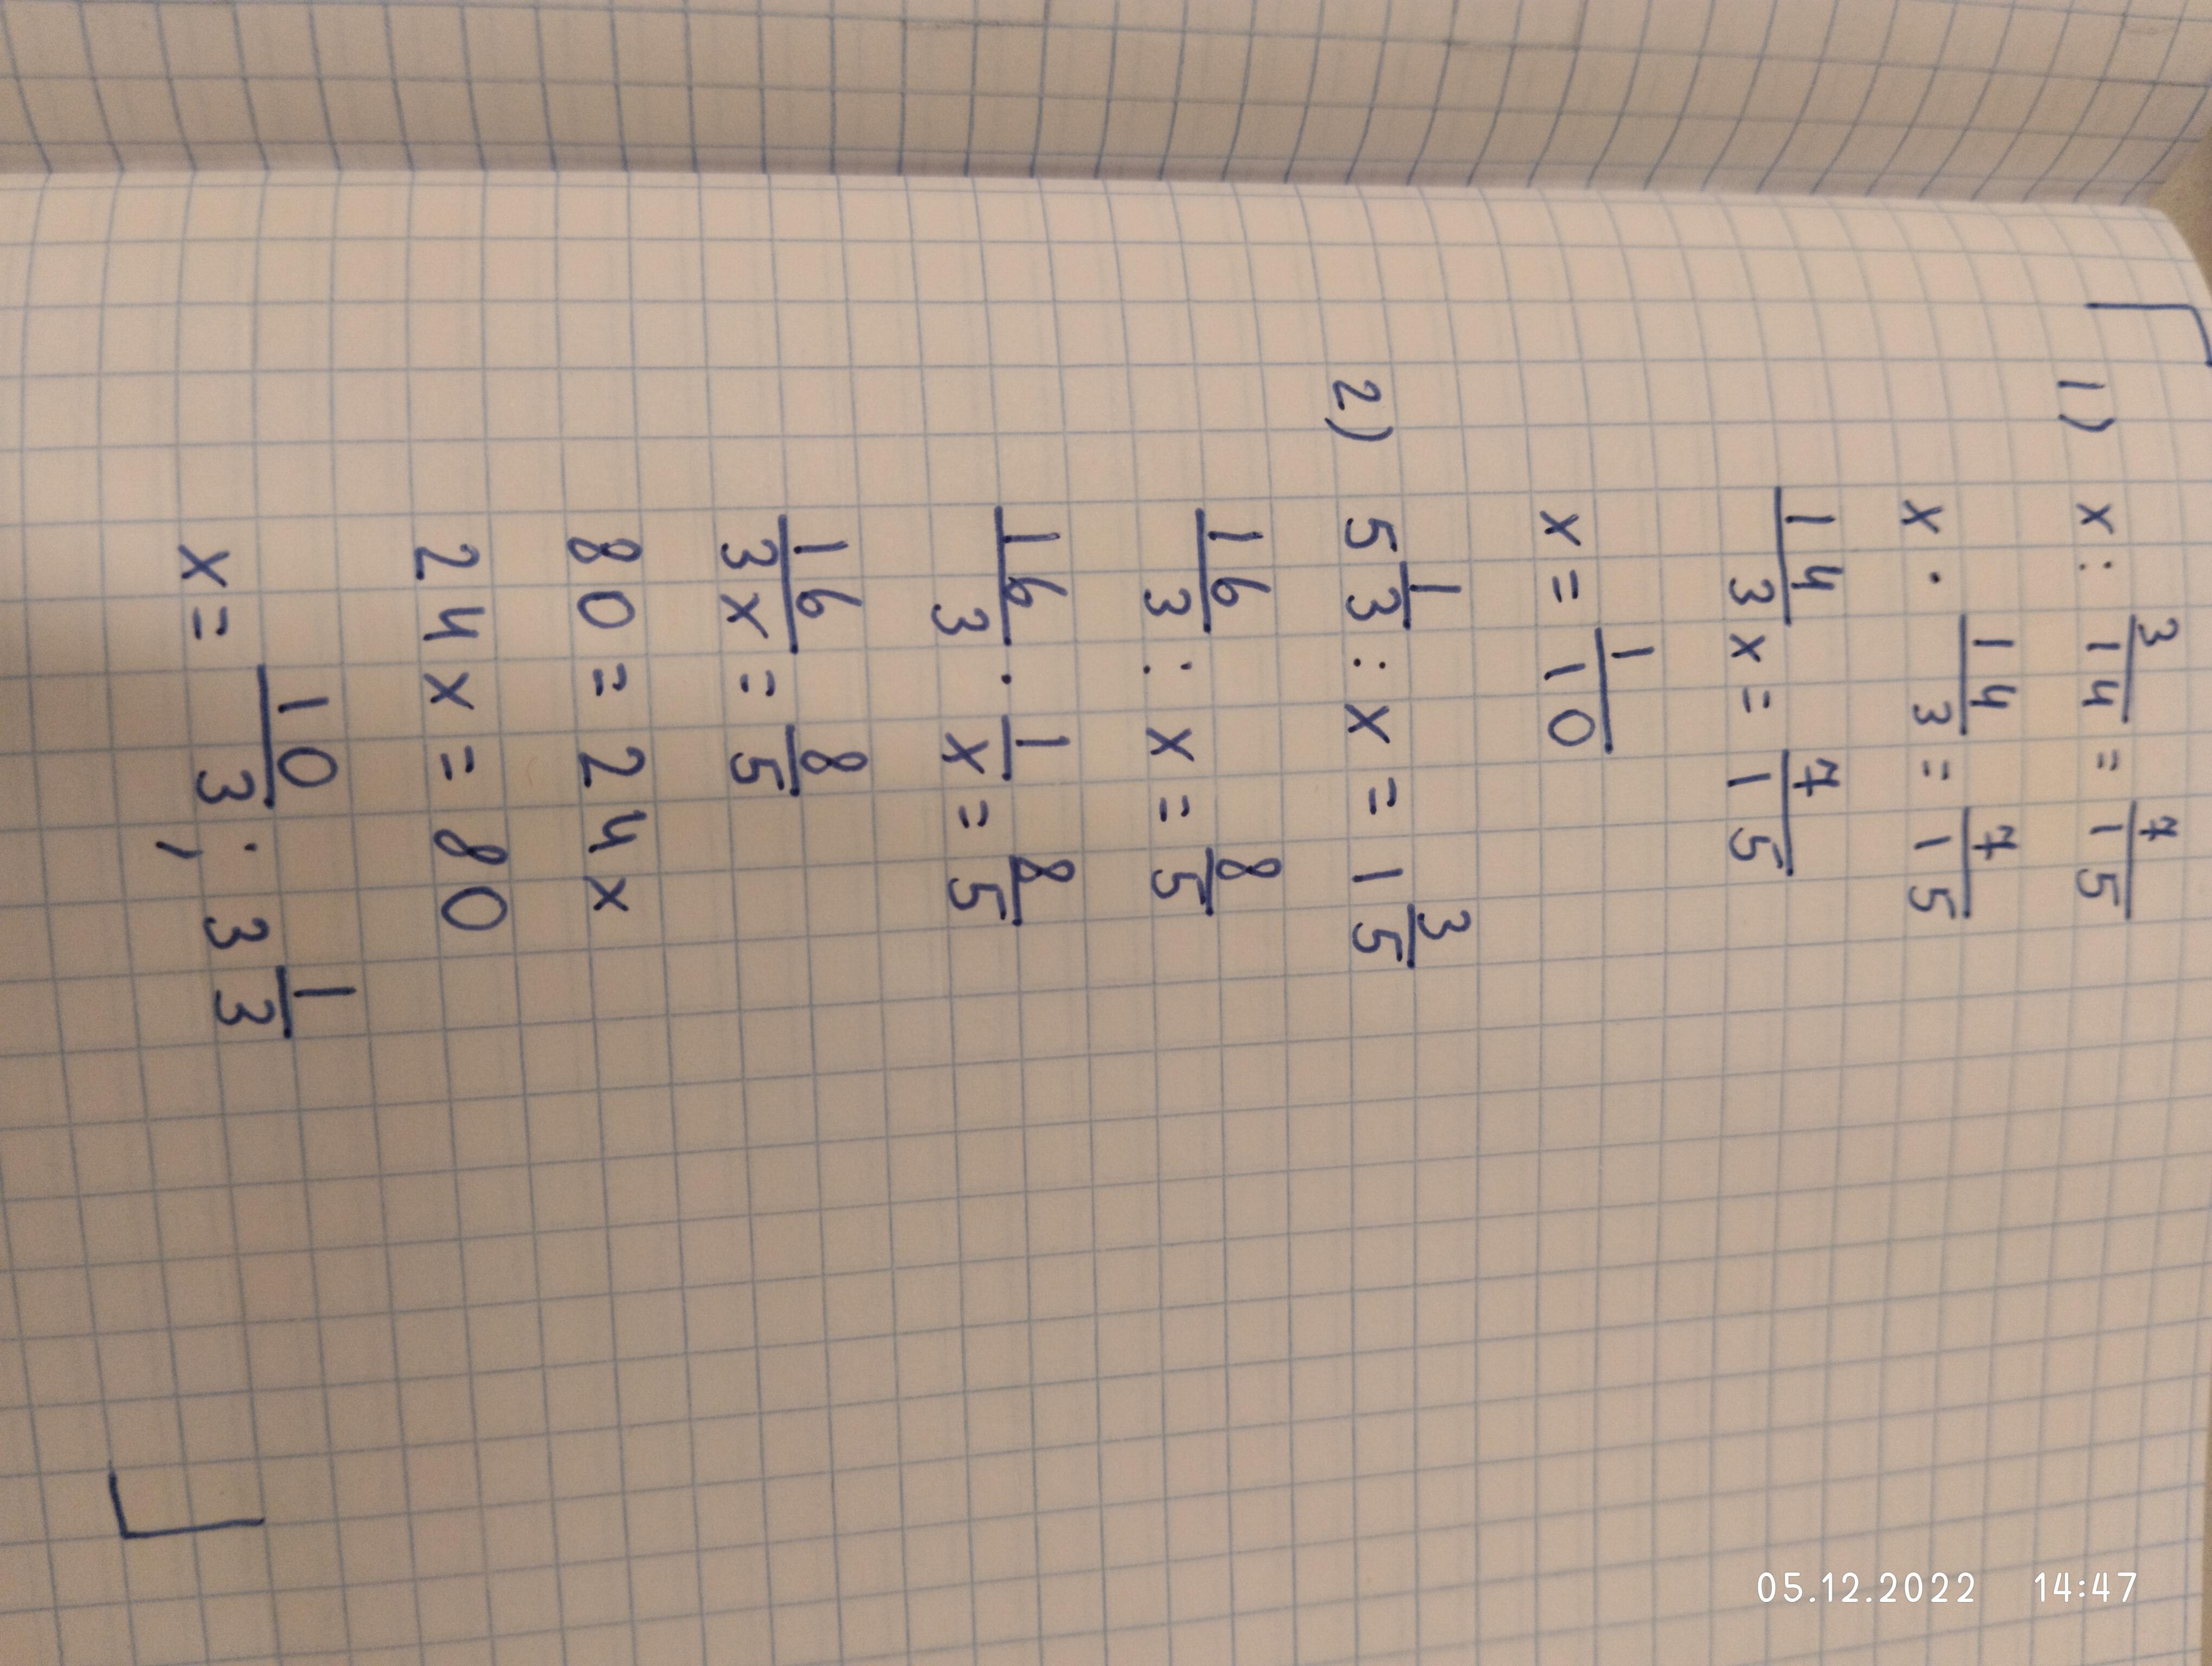 1) x : 3/14 = 7/15
x · 14/3 = 7/15
14/3 x = 7/15
x = 1/10
2) 5 1/3 : x = 1 3/5
16/3 : x = 8/5
16/3 · 1/x = 8/5
16/3x = 8/5
80 = 24x
24x = 80
x = 10/3 ; 3 1/3
05.12.2022 14:47